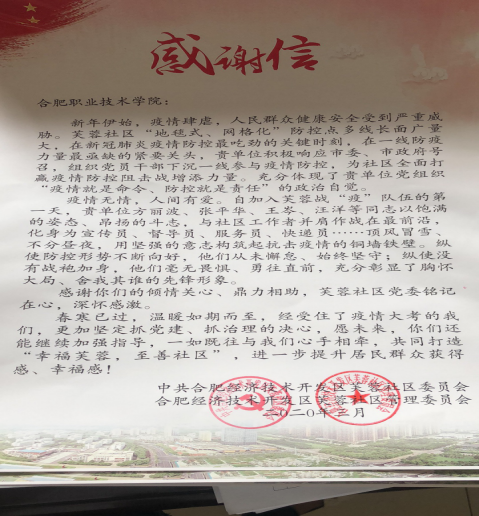 感谢信
合肥职业技术学院：
新年伊始，疫情肆虐，人民群众健康安全受到严重威
胁。芙蓉社区“地毯式、网格化”防控点多线长面广量
大，在新冠肺炎疫情防控最吃劲的关键时刻，在一线防疫
力量最亟缺的紧要关头，贵单位积极响应市委、市政府号
召，组织党员干部下沉一线参与疫情防控，为社区全面打
赢疫情防控阻击战增添力量。充分体现了贵单位党组织
“疫情就是命令、防控就是责任”的政治自觉。
疫情无情，人间有爱。自加入芙蓉战“疫”队伍的第
一天，贵单位方丽波、张平华、王岑、汪洋等同志以饱满
的姿态、昂扬的斗志，与社区工作者并肩作战在最前沿，
化身为宣传员、督导员、服务员、快递员……顶风冒雪、
不分昼夜，用坚强的意志构筑起抗击疫情的铜墙铁壁。纵
使防控形势不断向好，他们从未懈怠、始终坚守；纵使没
有战袍加身，他们毫无畏惧、勇往直前，充分彰显了胸怀
大局、舍我其谁的先锋形象。
感谢你们的倾情关心、鼎力相助，芙蓉社区党委铭记
在心，深怀感激。
春寒已过，温暖如期而至，经受住了疫情大考的我
们，更加坚定抓党建、抓治理的决心，愿未来，你们还
能继续加强指导，一如既往与我们心手相牵，共同打造
“幸福芙蓉，至善社区”，进一步提升居民群众获得
感、幸福感！
中共合肥经济技术开发区芙蓉社区委员会
合肥经济技术开发区芙蓉社区管理委员会
二〇二〇年三月